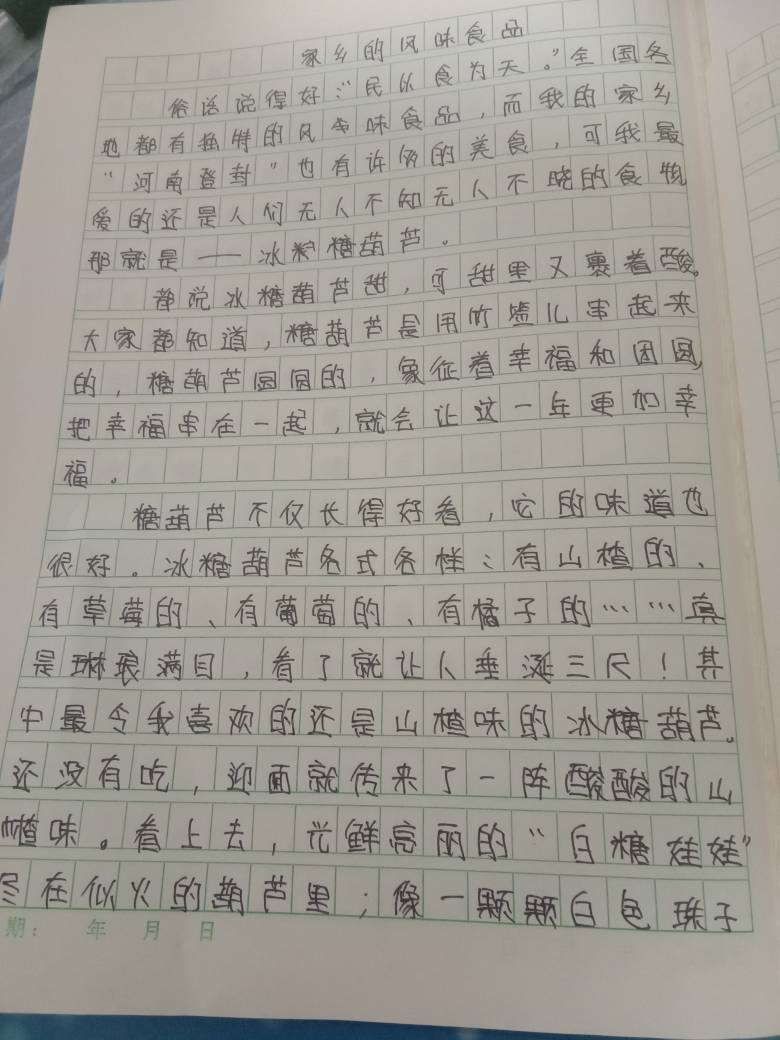 家乡的风味食品
俗话说得好:“民以食为天。”全国各
地都有独特的风味食品,而我的家乡
“河南登封”也有许多的美食,可我最
爱的还是人们无人不知无人不晓的食物
那就是——冰糖葫芦。
都说冰糖葫芦甜,可甜里又裹着酸。
大家都知道,糖葫芦是用竹签儿串起来
的,糖葫芦圆圆的,象征着幸福和团圆,
把幸福串在一起,就会让这一年更加幸
福。
糖葫芦不仅长得好看,它的味道也
很好。冰糖葫芦各式各样:有山楂的、
有草莓的、有葡萄的、有橘子的……真
是琳琅满目,看了就让人垂涎三尺!其
中最令我喜欢的还是山楂味的冰糖葫芦。
还没有吃,迎面就传来了一阵酸酸的山
楂味。看上去,光鲜亮丽的“白糖娃娃”
在似火的葫芦里;像一颗颗白色珠子
期: 年 月 日